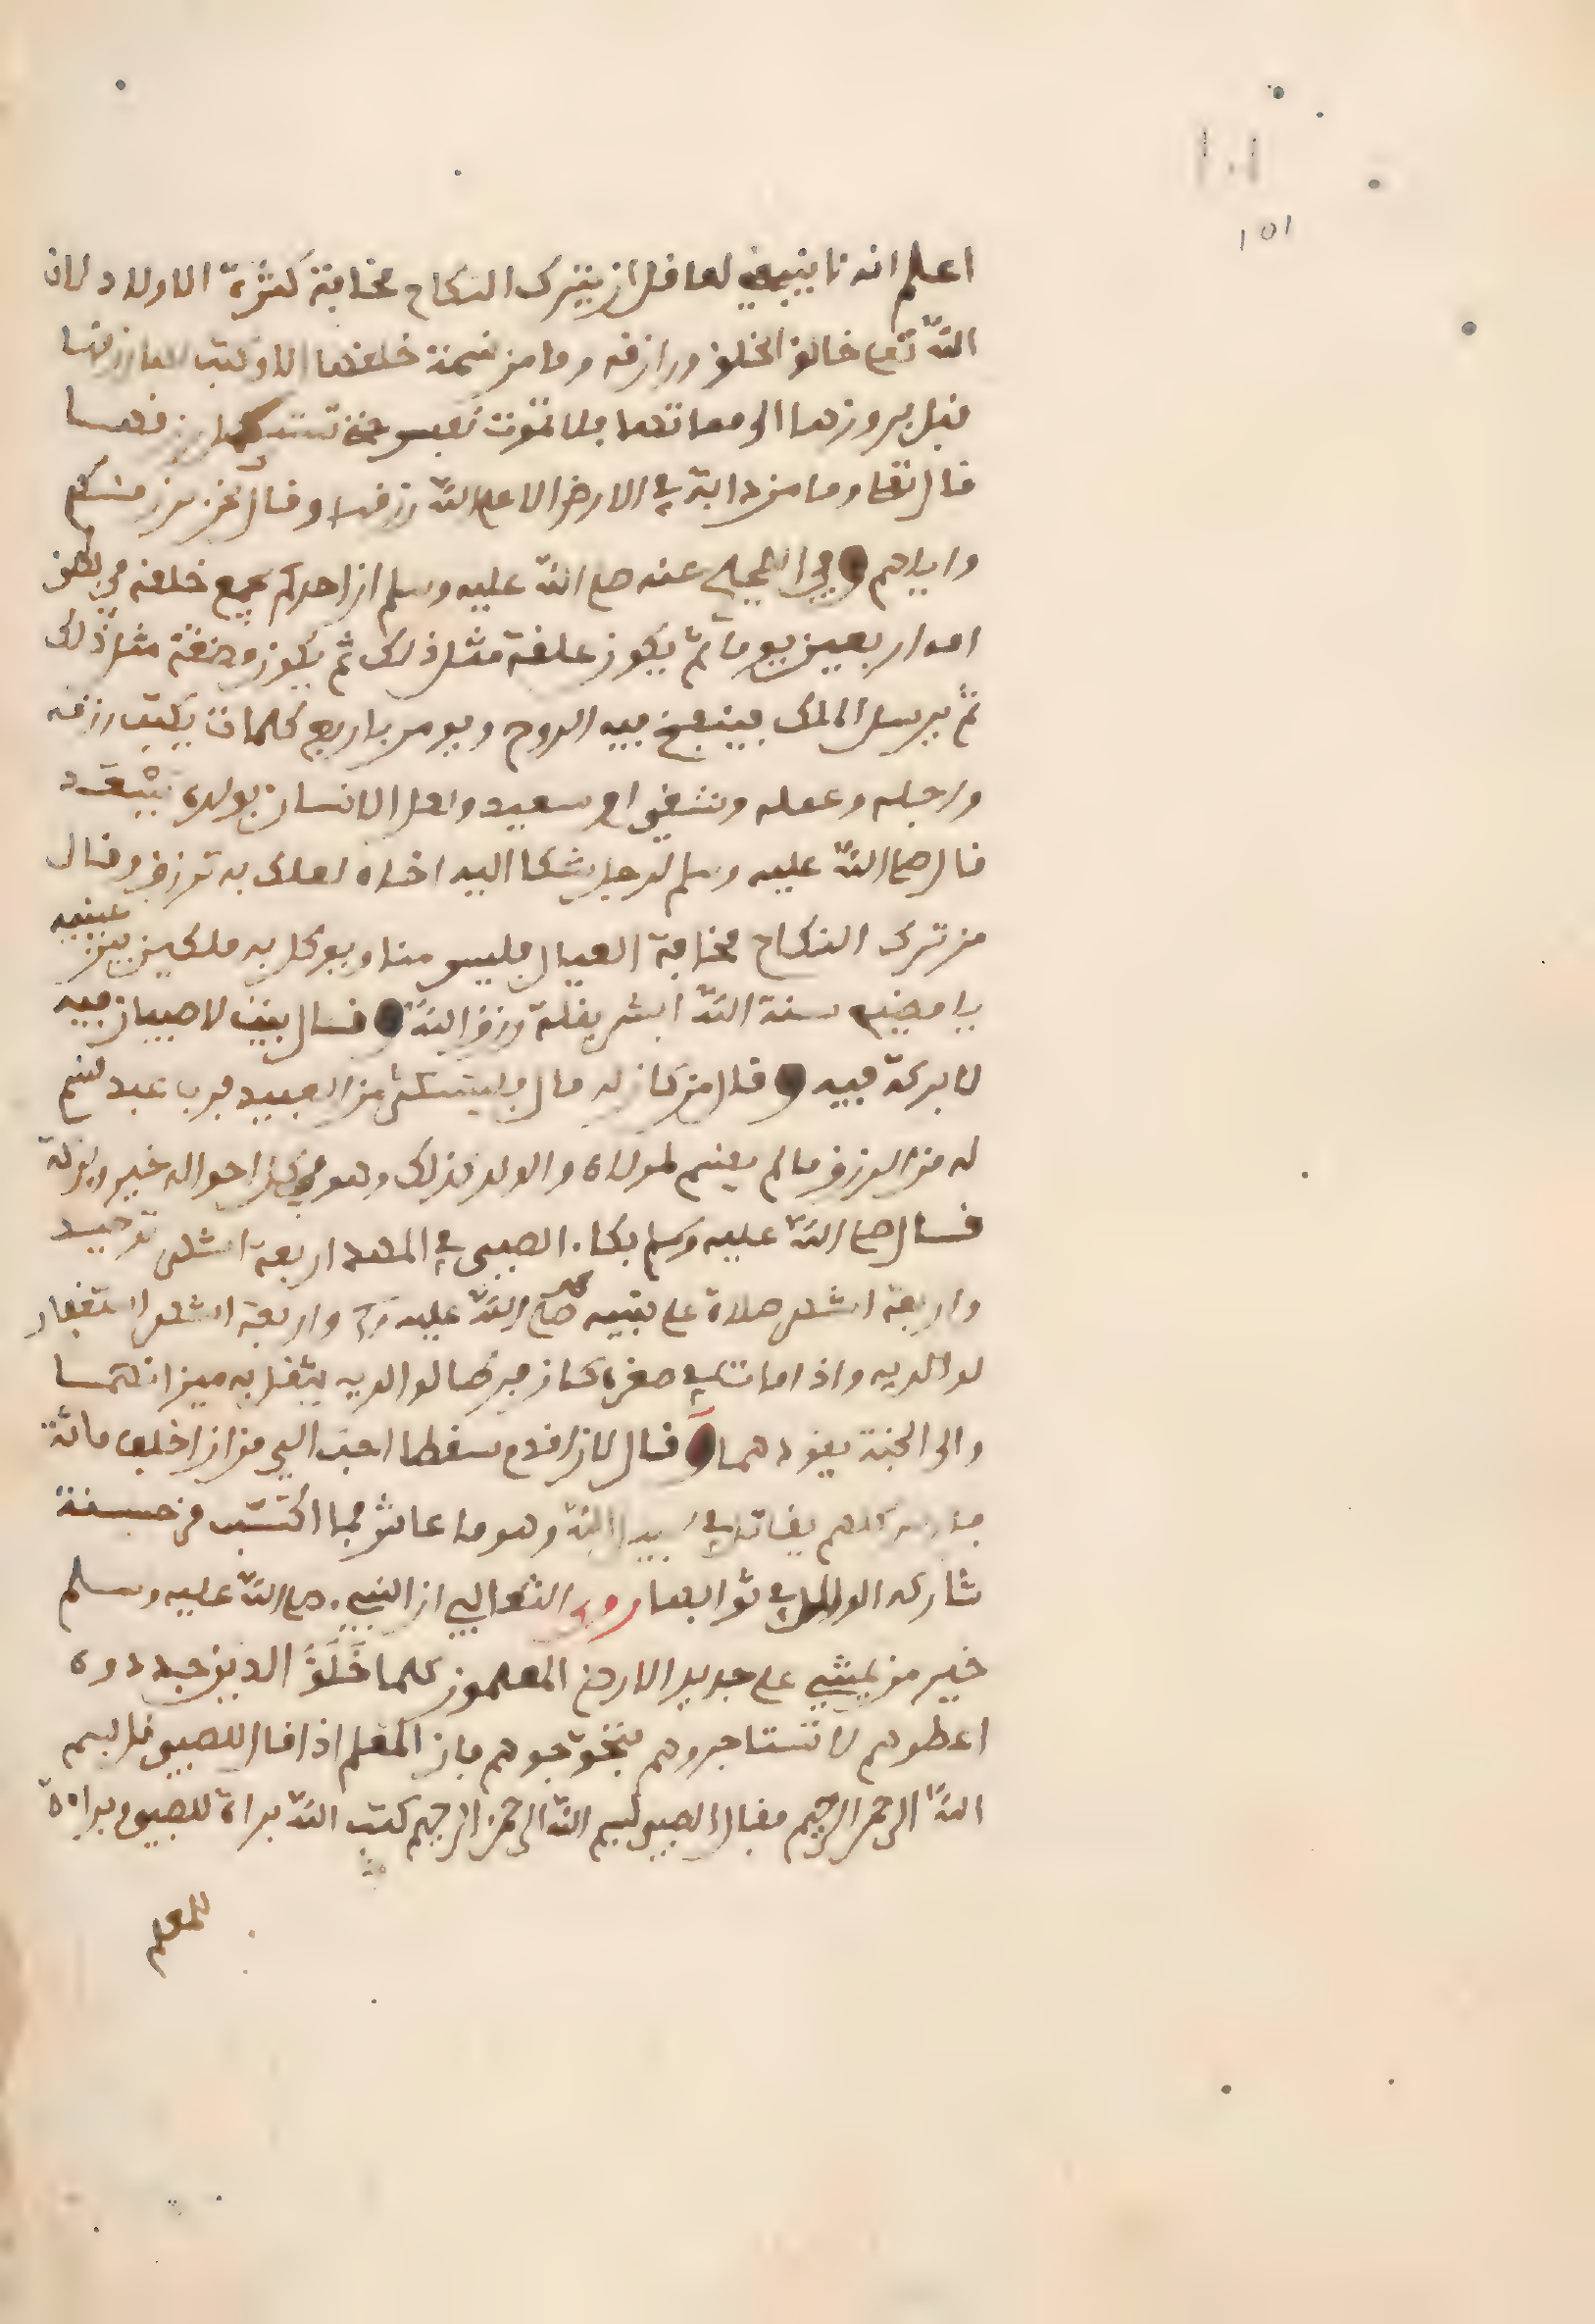 101
151
اعلم انه لا ينبغي لعاقل ان يترك النكاح مخافة كثرة الاولاد لان
الله تعلى خالق الخلق ورازقه وما من نسمة خلقها الا وكتب لها رزقها
قبل بروزها الى مماتها فلا تموت نفس حتى تستكمل رزقها
قال تعلى وما من دابة في الارض الا على الله رزقها وقال نحن نرزقكم
واياهم وفي الصحيح عنه صلى الله عليه وسلم ان احدكم يجمع خلقه في بطن
امه اربعين يوما ثم يكون علقة مثل ذلك ثم يكون مضغة مثل ذلك
ثم يرسل الملك فينفخ فيه الروح ويومر باربع كلمات يكتب رزقه
واجله وعمله وشقي او سعيد ولعل الانسان بولده يسعد
قال صلى الله عليه وسلم لرجل شكا اليه اخاه لعلك به ترزق وقال
من ترك النكاح مخافة العيال فليس منا ويوكل به ملكين بين عينيه
يا مضيع سنة الله ابشر بقلة رزق الله وقال بيت لا صبيان فيه
لا بركة فيه وقال من كان له مال فليستكثر من العبيد فرب عبد قسم
له من الرزق ما لم يقسم لمولاه والولد كذلك وهو في كل احواله خير وبركة
قال صلى الله عليه وسلم بكاء الصبي في المهد اربعة اشهر توحيد
واربعة اشهر صلاة على نبيه محمد صلى الله عليه وسلم واربعة اشهر استغفار
لوالديه واذا مات في صغره كان فرطا لوالديه يثقل به ميزانهما
والى الجنة يقودهما وقال لان اقدم سقطا احب الي من ان اخلف مائة
فارس كلهم يقاتل في سبيل الله وهو ما عاش فما اكتسب من حسنة
شاركه الوالد في ثوابها روى الثعالبي ان النبي صلى الله عليه وسلم
خير من يمشي على جديد الارض المعلمون كلما خلق الدين جددوه
اعطوهم لا تستاجروهم فتحوجوهم فان المعلم اذا قال للصبي قل بسم
الله الرحمن الرحيم فقال الصبي بسم الله الرحمن الرحيم كتب الله براءة للصبي وبراءة
للمعلم